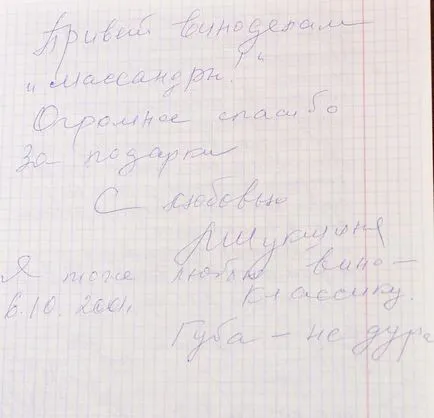 Привет виноделам
„Массандры!“
Огромное спасибо
За подарки
С любовью
ЛШукшина
Я тоже люблю вино-
классику.
6.10.2001.
Губа – не дура